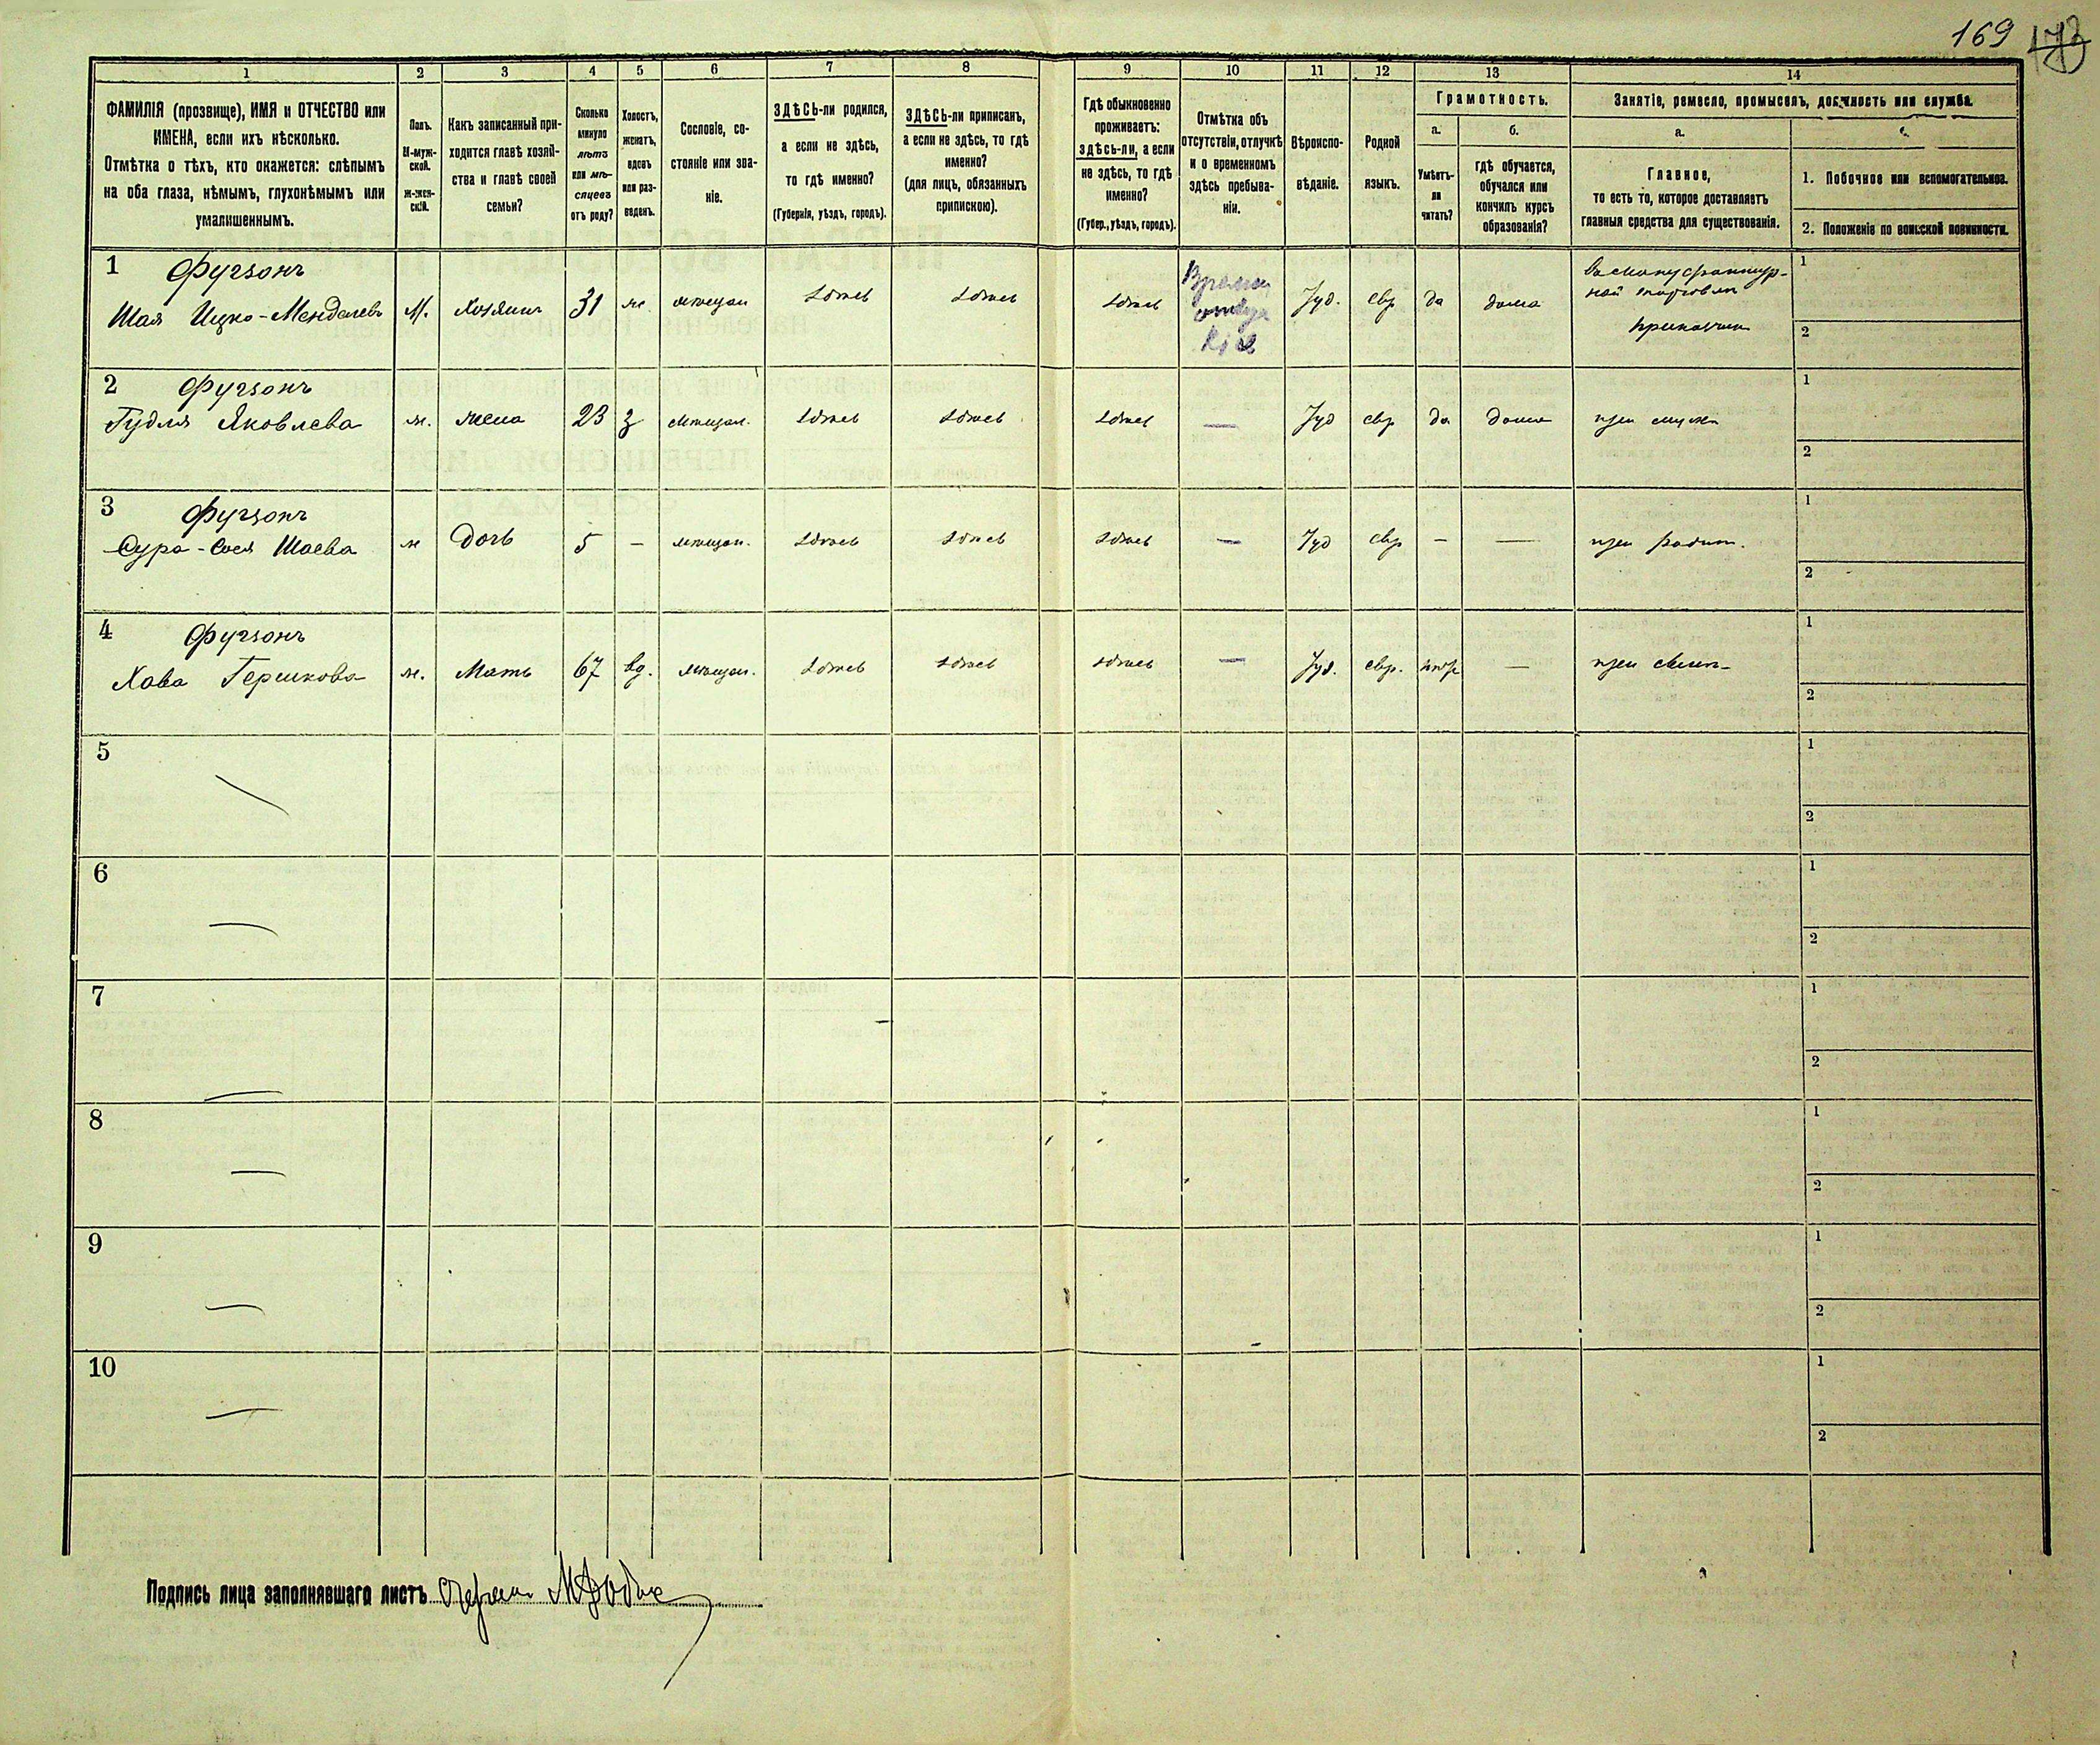 169 173
1
2
3
4
5
6
7
8
9
10
11
12
13
14
ФАМИЛІЯ (прозвище), ИМЯ и ОТЧЕСТВО или
ИМЕНА, если ихъ нѣсколько.
Отмѣтка о тѣхъ, кто окажется: слѣпымъ
на оба глаза, нѣмымъ, глухонѣмымъ или
умалишеннымъ.
Полъ.
М-муж-
ской.
Ж-жен-
скій.
Какъ записанный при-
ходится главѣ хозяй-
ства и главѣ своей
семьи?
Сколько
минуло
лѣтъ
или мѣ-
сяцевъ
отъ роду?
Холостъ,
женатъ,
вдовъ
или раз-
веденъ.
Сословіе, со-
стояніе или зва-
ніе.
ЗДѢСЬ-ли родился,
а если не здѣсь,
то гдѣ именно?
(Губернія, уѣздъ, городъ).
ЗДѢСЬ-ли приписанъ,
а если не здѣсь, то гдѣ
именно?
(для лицъ, обязанныхъ
припискою).
Гдѣ обыкновенно
проживаетъ:
здѣсь-ли, а если
не здѣсь, то гдѣ
именно?
(Губер., уѣздъ, городъ).
Отмѣтка объ
отсутствіи, отлучкѣ
и о временномъ
здѣсь пребыва-
ніи.
Вѣроиспо-
вѣданіе.
Родной
языкъ.
Грамотность.
а.
Умѣетъ-
ли
читать?
б.
Гдѣ обучается,
обучался или
кончилъ курсъ
образованія?
Занятіе, ремесло, промыселъ, должность или служба.
а.
Главное,
то есть то, которое доставляетъ
главныя средства для существованія.
1. Побочное или вспомогательное.
2. Положеніе по воинской повинности.
1 Фугзонъ
Шая Ицко-Менделевъ М. Хозяинъ 31 ж. мѣщан здѣсь здѣсь здѣсь Іуд. евр да дома
приказчик
1
2
2 Фугзонъ
Гудля Яковлева ж. жена 23 з мѣщан. здѣсь здѣсь здѣсь — Іуд евр да дома при мужѣ
1
2
3 Фугзонъ
Сура-Сося Шаева ж дочь 5 — мѣщан. здѣсь здѣсь здѣсь — Іуд евр — — при родит.
1
2
4 Фугзонъ
Хава Гершкова ж. Мать 67 вд. мѣщан. здѣсь здѣсь здѣсь — Іуд. евр. нѣтъ — при
1
2
5
1
2
6
1
2
7
1
2
8
1
2
9
1
2
10
1
2
Подпись лица заполнявшаго листъ